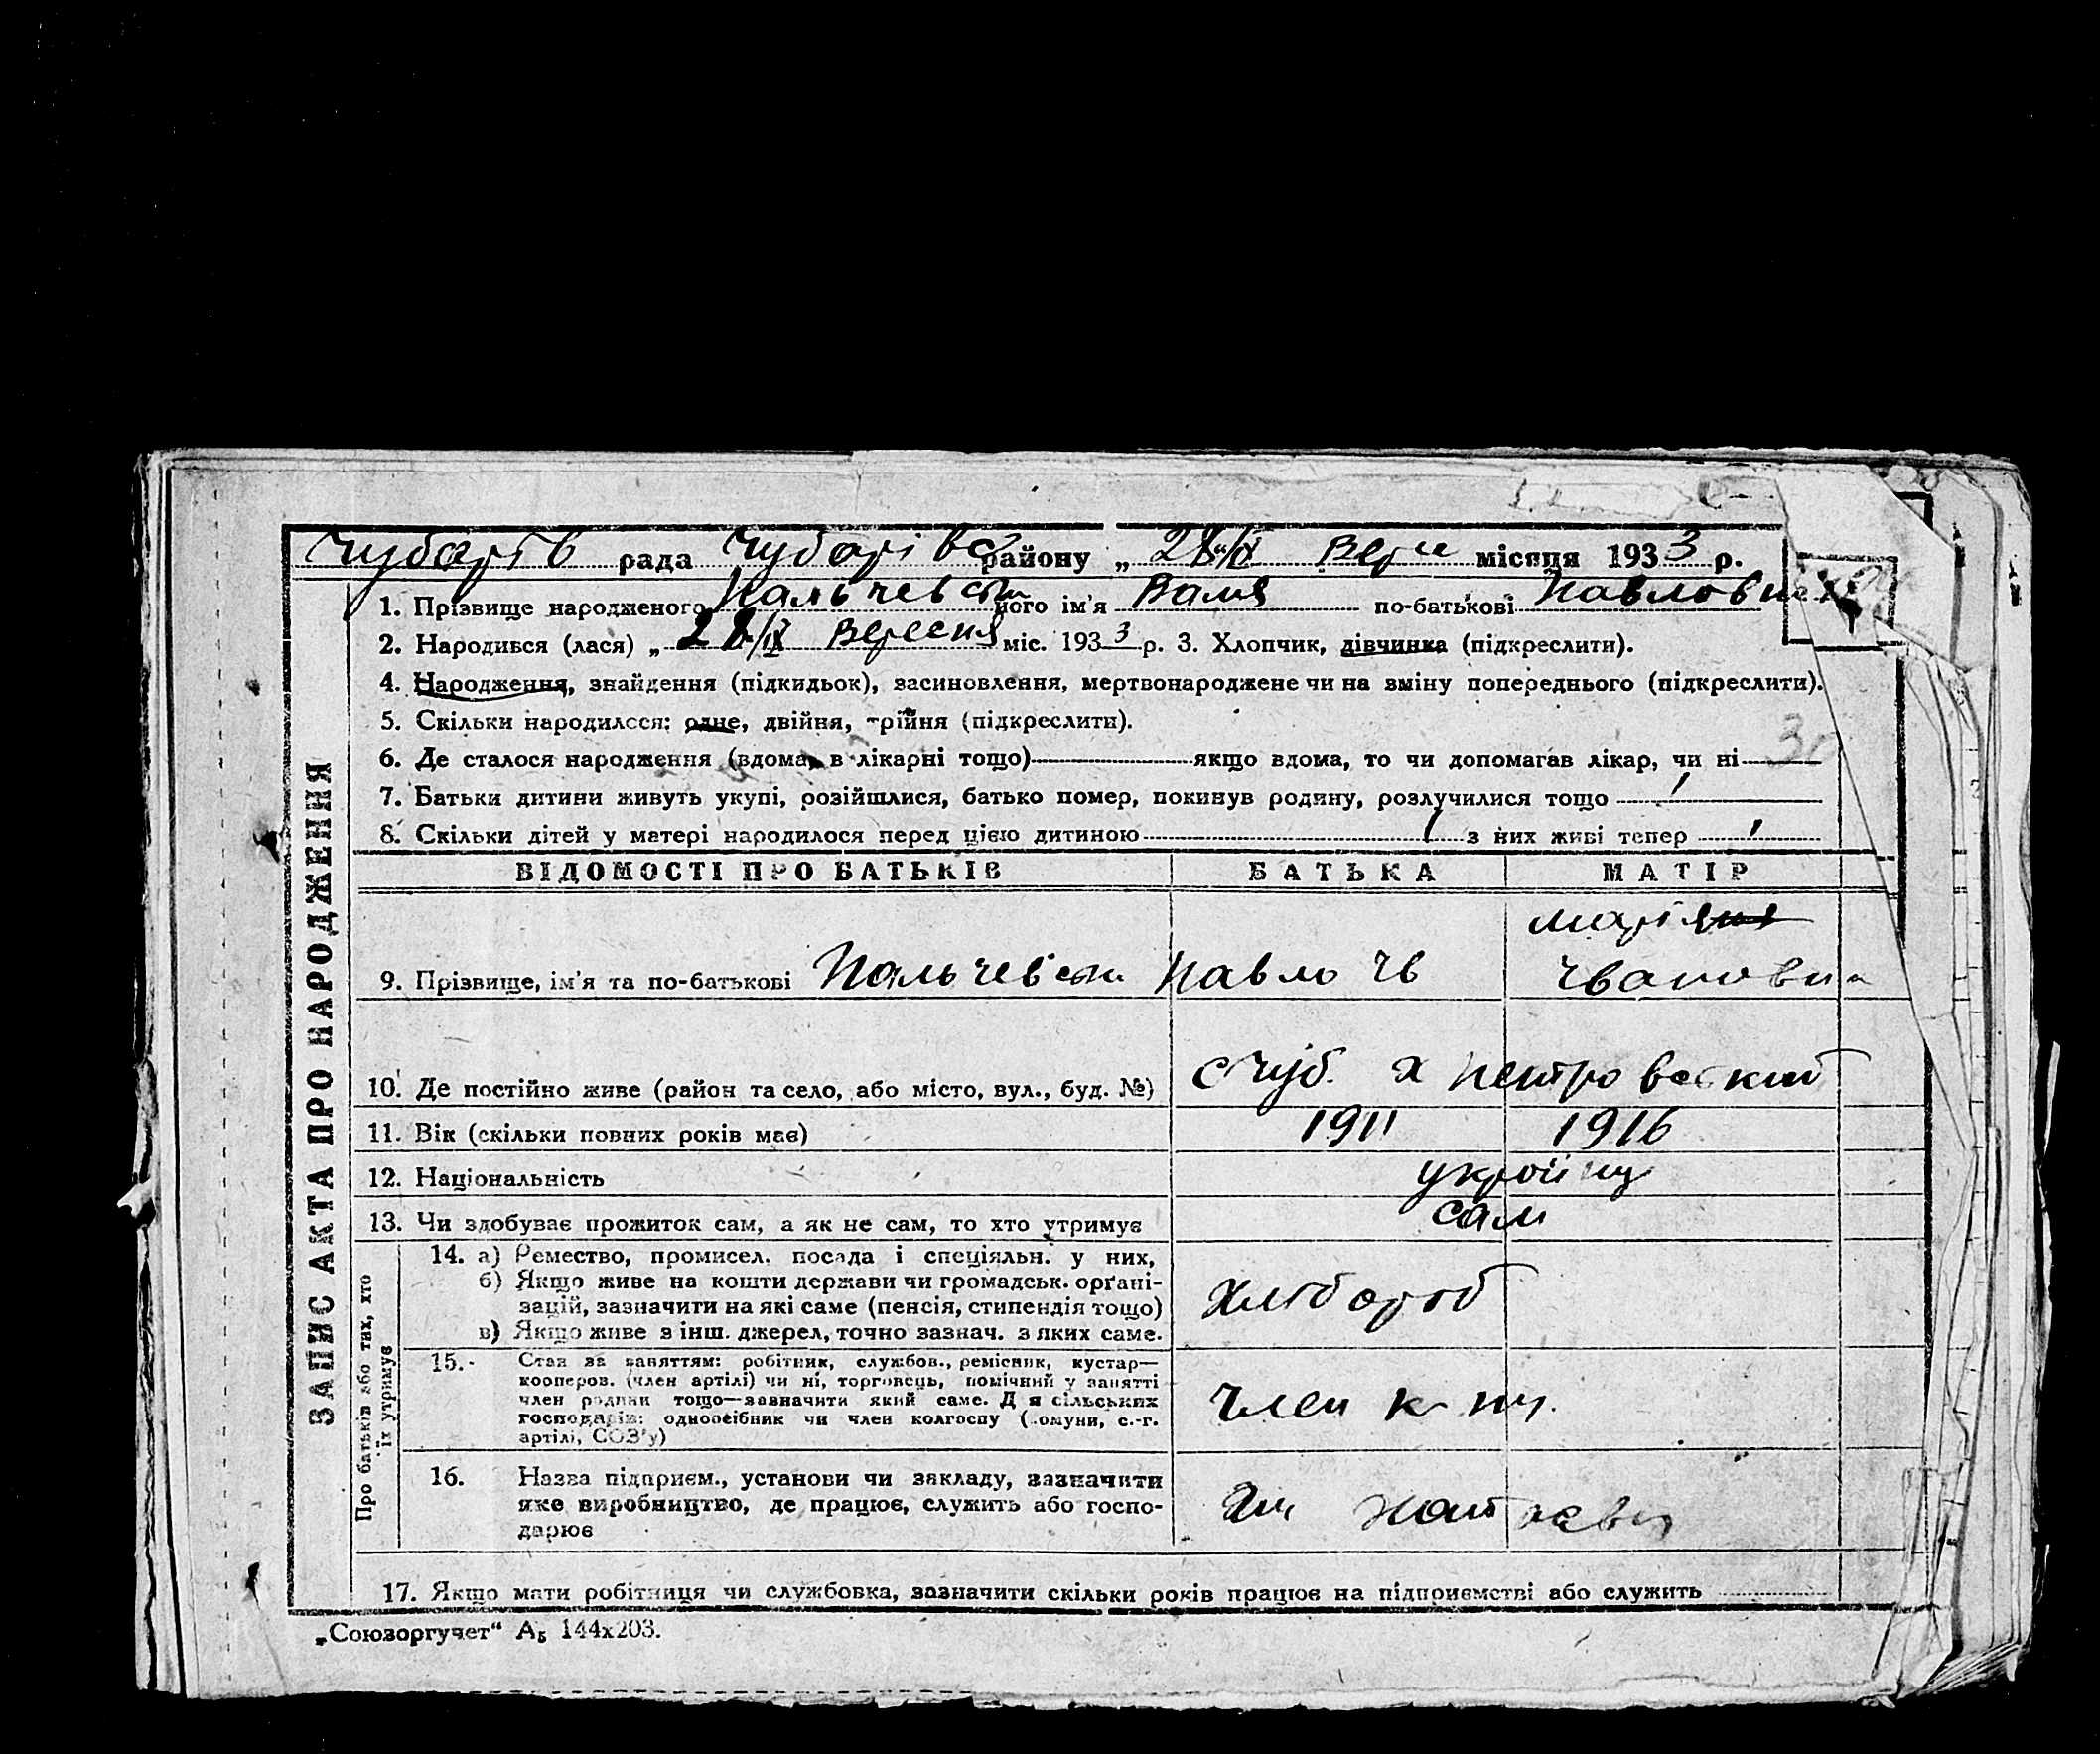 Чубарів рада Чубарівс району „ 28/IX Вере місяця 1933 р.
1. Прізвище народженого Пальчевськ його ім'я Валя по-батькові Павловна
2. Народився (лася) „ 28/IX Вересня міс. 1933 р. 3. Хлопчик, дівчинка (підкреслити).
4. Народження, знайдення (підкидьок), засиновлення, мертвонароджене чи на зміну попереднього (підкреслити).
5. Скільки народилося: одне, двійня, трійня (підкреслити).
6. Де сталося народження (вдома, в лікарні тощо) якщо вдома, то чи допомагав лікар, чи ні
7. Батьки дитини живуть укупі, розійшлися, батько помер, покинув родину, розлучилися тощо
8. Скільки дітей у матері народилося перед цією дитиною з них живі тепер
ЗАПИС АКТА ПРО НАРОДЖЕННЯ
ВІДОМОСТІ ПРО БАТЬКІВ БАТЬКА МАТІР
Марія
9. Прізвище, ім'я та по-батькові Пальчевськ Павло Ів Івановна
10. Де постійно живе (район та село, або місто, вул., буд. №) с Чуб. х Петровський
11. Вік (скільки повних років має) 1911 1916
12. Національність україну
13. Чи здобуває прожиток сам, а як не сам, то хто утримує сам
Про батьків або тих, хто
їх утримує
14. а) Ремество, промисел, посада і спеціяльн. у них,
б) Якщо живе на кошти держави чи громадськ. орґані-
зацій, зазначити на які саме (пенсія, стипендія тощо) Хлібороб
в) Якщо живе з інш. джерел, точно зазнач. з яких саме.
15. Стан за заняттям: робітник, службов., ремісник, кустар—
кооперов. (член артілі) чи ні, торговець, помічний у занятті
член родини тощо—зазначити який саме. Д я сільських
господарів: одноосібник чи член колгоспу (комуни, с.-г. член
артілі, СОЗ'у)
16. Назва підприєм., установи чи закладу, зазначити
яке виробництво, де працює, служить або госпо-
дарює
17. Якщо мати робітниця чи службовка, зазначити скільки років працює на підприємстві або служить
„Союзоргучет“ А5 144х203.